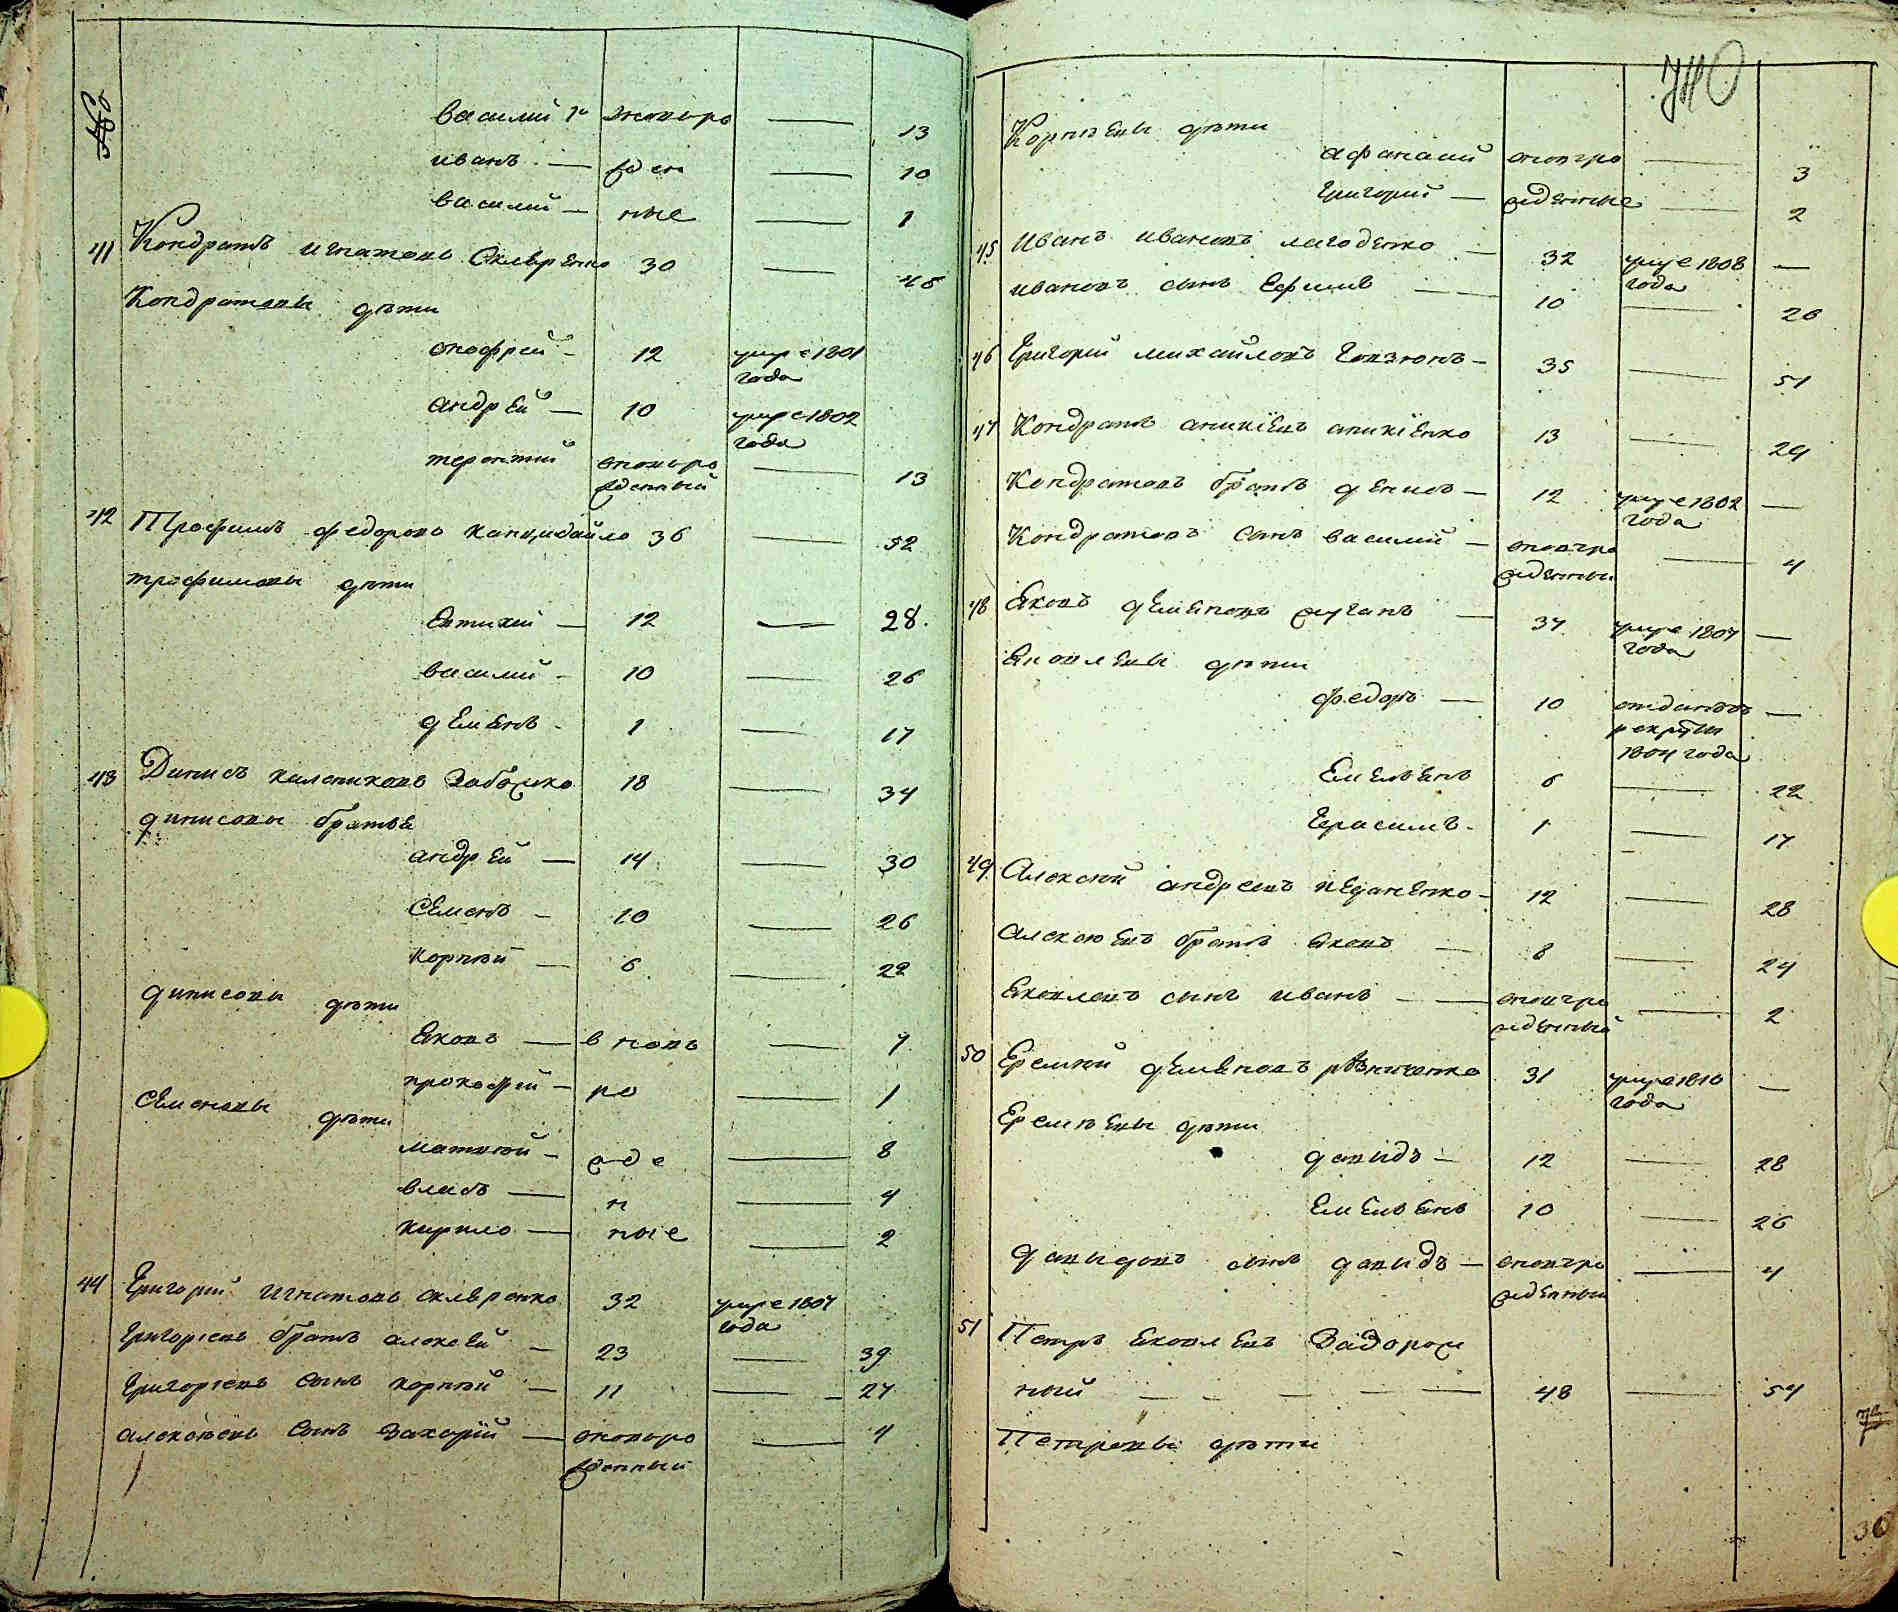 василий 1й вновьро 13
иванъ жден 10
василий ные 1
41 Кондратъ игнатовъ Скляренко 30 46
Кондратовы дѣти
онофрей 12 умре 1801
года
андрей 10 умре 1802
года
терентий вновьро 13
жденный
42 Трофимъ федоровъ 36 52
трофимовы дѣти
Евтихий 12 28.
василий 10 26
демьянъ 1 17
43 Динисъ калениковъ 18 34
динисовы братья
андрей 14 30
Семенъ 10 26
Корнѣй 6 22
динисовы дѣти
Яковъ в новь 7
прокофей ро 1
Семеновы дѣти
матвѣй жде 8
власъ н 4
кирило ные 2
44 Григорий игнатовъ скляренко 32 умре 1807
года
Григориевъ братъ алексей 23 39
Григориевъ сынъ корнѣй 11 27
алексѣевъ сынъ Захарий вновьро 4
жденный
740
Корнѣевы дѣти
афанасий вновьро 3
Григорий жденные 2
45 Иванъ ивановъ лагоденко 32 умре 1808
года
ивановъ сынъ Ефимъ 10 26
46 Григорий михайловъ 35 51
47 Кондратъ аникіевъ аникіенко 13 29
Кондратовъ братъ денисъ 12 умре 1802
года
Кондратовъ сынъ василий вновьро 4
жденный
48 Яковъ демьяновъ 37 умре 1807
года
Яковлевы дѣти
федоръ 10 отданъ въ
рекруты
1804 года
Емельянъ 6 22
Герасимъ 1 17
49 Алексѣй андреевъ 12 28
алексѣевъ братъ яковъ 8 24
Яковлевъ сынъ иванъ вновьро 2
жденный
50 Еремѣй демьяновъ рѣзниченко 31 умре 1810
года
Еремѣевы дѣти
давыдъ 12 28
Емельянъ 10 26
давыдовъ сынъ давыдъ вновьро 4
жденный
51 Петръ яковлевъ Задорож
ный 48 54
Петровы дѣти